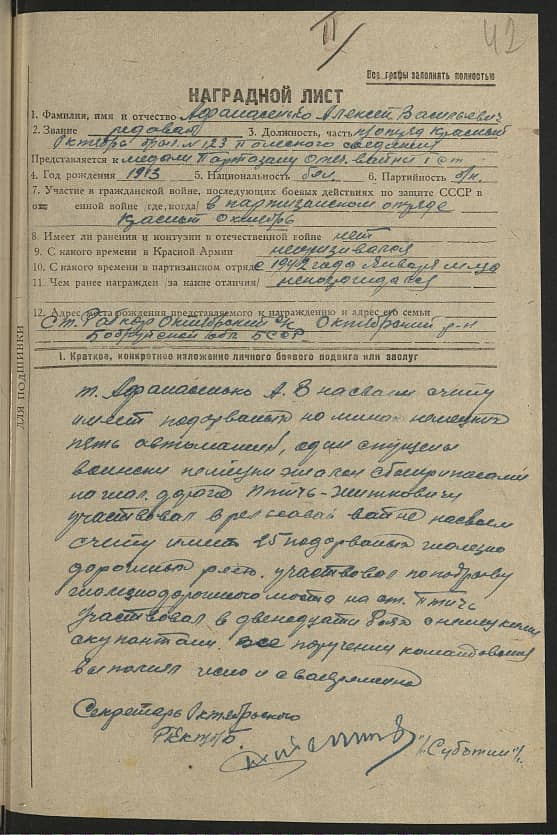 II
42
Все графы заполнять полностью
НАГРАДНОЙ ЛИСТ
1. Фамилия, имя и отчество Афанасенко Алексей Васильевич
2. Звание рядовой 3. Должность, часть п/отряд Красный
Октябрь бриг. № 123 Полесского соединения
Представляется к медали Партизану Отеч. войны I ст.
4. Год рождения 1913 5. Национальность бел. 6. Партийность б/п.
7. Участие в гражданской войне, последующих боевых действиях по защите СССР в
оте енной войне где, когда) в партизанском отряде
Красный Октябрь
8. Имеет ли ранения и контузии в отечественной войне нет
9. С какого времени в Красной Армии неслуживался
10. С какого времени в партизанском отряде с 1942 года Января м-ца
11. Чем ранее награжден /за какие отличия/ ненаграждался
12. Адрес места рождения представляемого к награждению и адрес его семьи
Ст. Рабкор Октябрьский с/с Октябрьский р-н
Бобруйской обл. БССР
ДЛЯ ПОДШИВКИ
I. Краткое, конкретное изложение личного боевого подвига или заслуг
т. Афанасенко А. В на своем счету
имеет подорваных на минах немецких
пять автомашин, один спущены
воински немецки эшалон с боеприпасами
на жел. дороге Птичь-Житковичи
участвовал в рельсовой войне на своем
счету имеет 25 подорваных железно
дорожных рельс. участвовал по подрыву
железнодорожного моста на ст. Птичь
Участвовал в двенедцати боях с немецкими
окупантами. все поручения командования
выполнял чесно и своевременно
Секретарь Октябрьского
РК КП/б/Б.
/Субботин/.